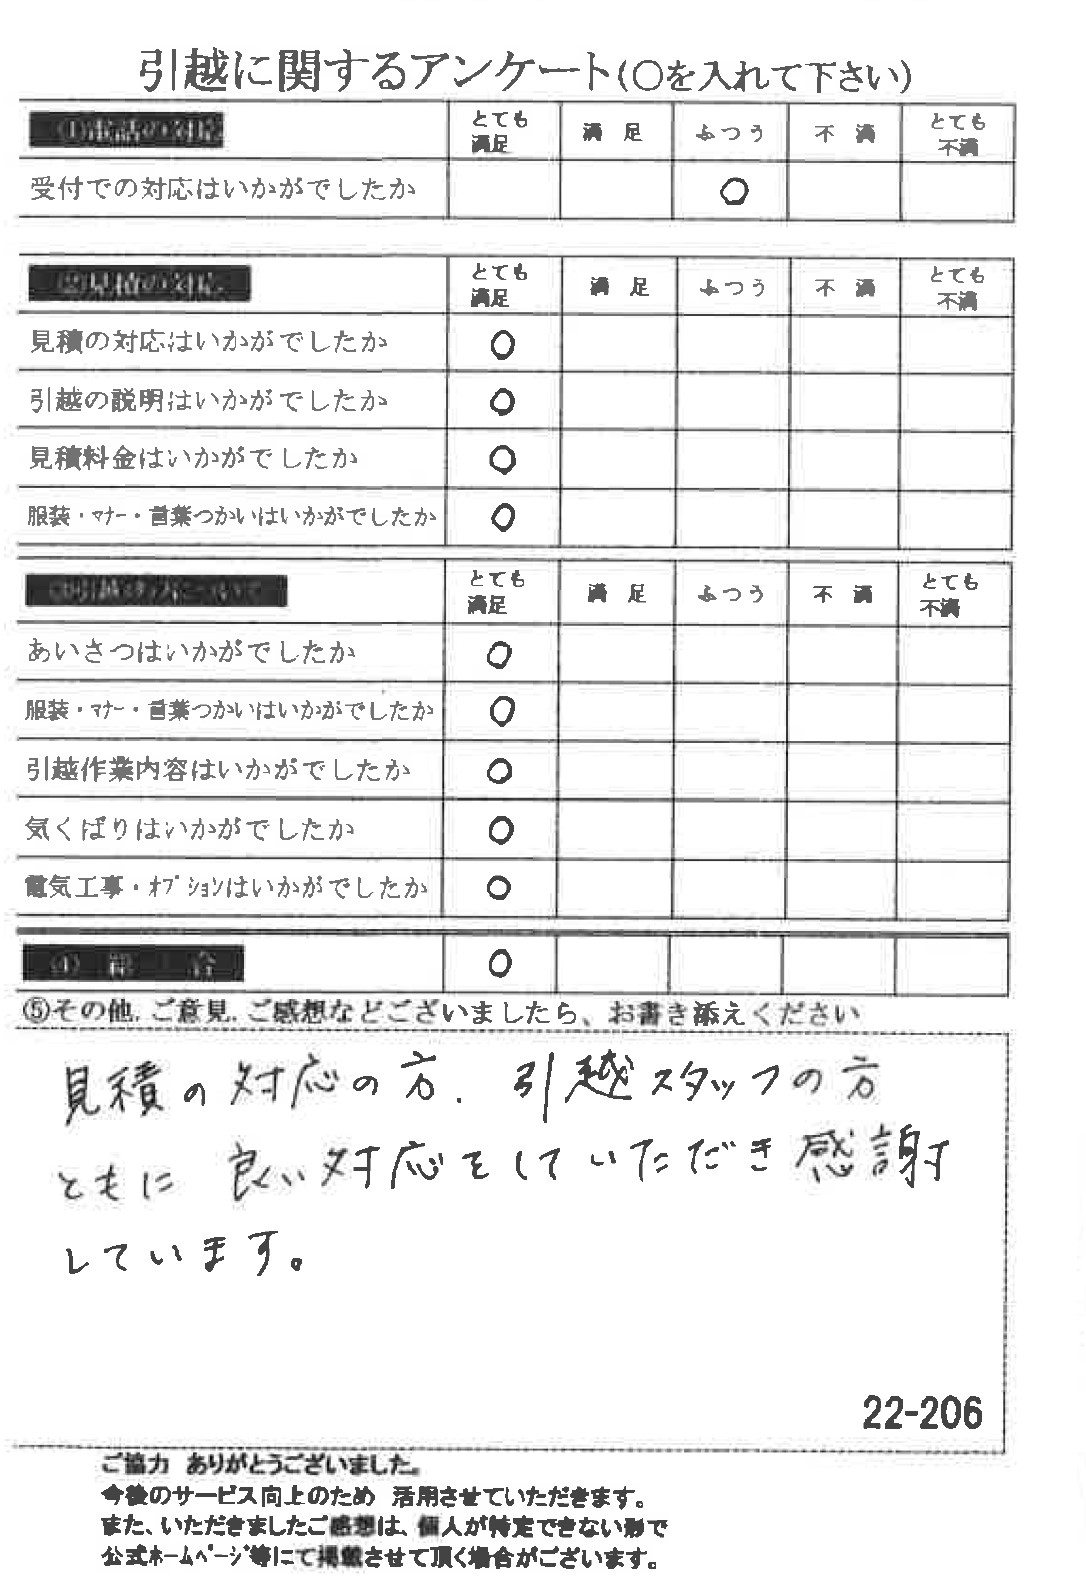 引越に関するアンケート(○を入れて下さい)
①電話の対応 とても満足 満足 ふつう 不満 とても不満
受付での対応はいかがでしたか ○
②見積の対応 とても満足 満足 ふつう 不満 とても不満
見積の対応はいかがでしたか ○
引越の説明はいかがでしたか ○
見積料金はいかがでしたか ○
服装・マナー・言葉つかいはいかがでしたか ○
とても満足 満足 ふつう 不満 とても不満
あいさつはいかがでしたか ○
服装・マナー・言葉つかいはいかがでしたか ○
引越作業内容はいかがでしたか ○
気くばりはいかがでしたか ○
電気工事・オプションはいかがでしたか ○
④ 総 合 ○
⑤その他、ご意見、ご感想などございましたら、お書き添えください
見積の対応の方、引越スタッフの方
ともに 良い対応をしていただき感謝
しています。
22-206
ご協力 ありがとうございました。
今後のサービス向上のため 活用させていただきます。
また、いただきましたご感想は、個人が特定できない形で
公式ホームページ等にて掲載させて頂く場合がございます。